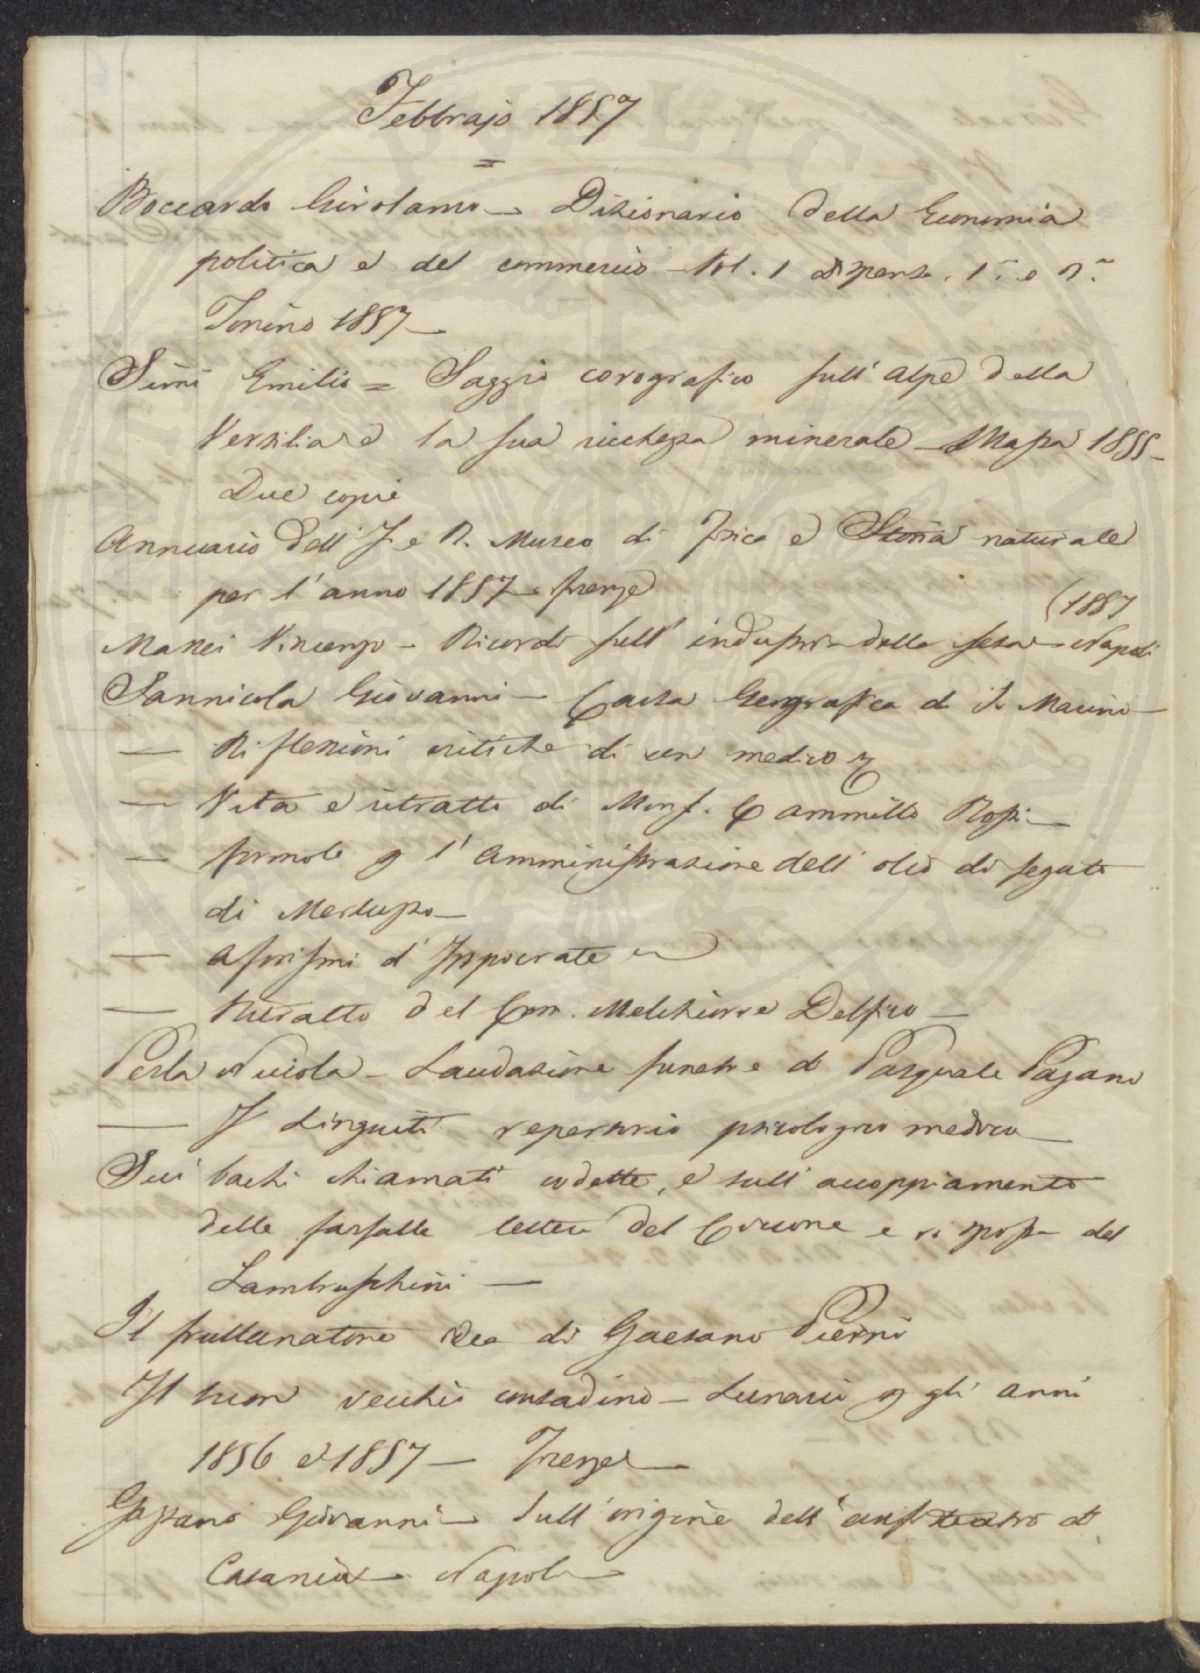 Febbrajo 1857
Boccardo Girolamo - Dizionario della Economia
politica e del commercio - Vol. 1 dispensa. 1.a e 2.a
Torino 1857 -
Simi Emilio = Saggio corografico sull' alpe della
Versilia e la sua ricchezza minerale - Massa 1855 -
Due copie
Annuario dell' I. e R. Museo di Fisica e Storia naturale
per l'anno 1857 - Firenze
(1857
Massei Vincenzo - Ricordi sull' industria della seta - Napoli
Sannicola Giovanni - Carta Geografica di S. Marino -
— Riflessioni critiche di un medico
— Vita e ritratto di Mons. Cammillo Rossi -
— formole p l' amministrazione dell' olio di fegato
di Merluzzo -
— Aforismi d' Ippocrate
— Ritratto del Com. Melchiorre Delfico -
Perla Nicola - Laudazione funebre di Pasquale Pagano
— I Linguiti repertorio psicologico medico -
Sui bachi chiamati codette, e sull' accoppiamento
delle farfalle lettera del Ciccone e risposta del
Lambruschini —
Il frullanatore di Gaetano Pierni
Il buon vecchio contadino - Lunario p gli anni
1856 e 1857 - Firenze -
Gassano Giovanni - Sull' origine dell' anfiteatro di
Catania - Napoli -